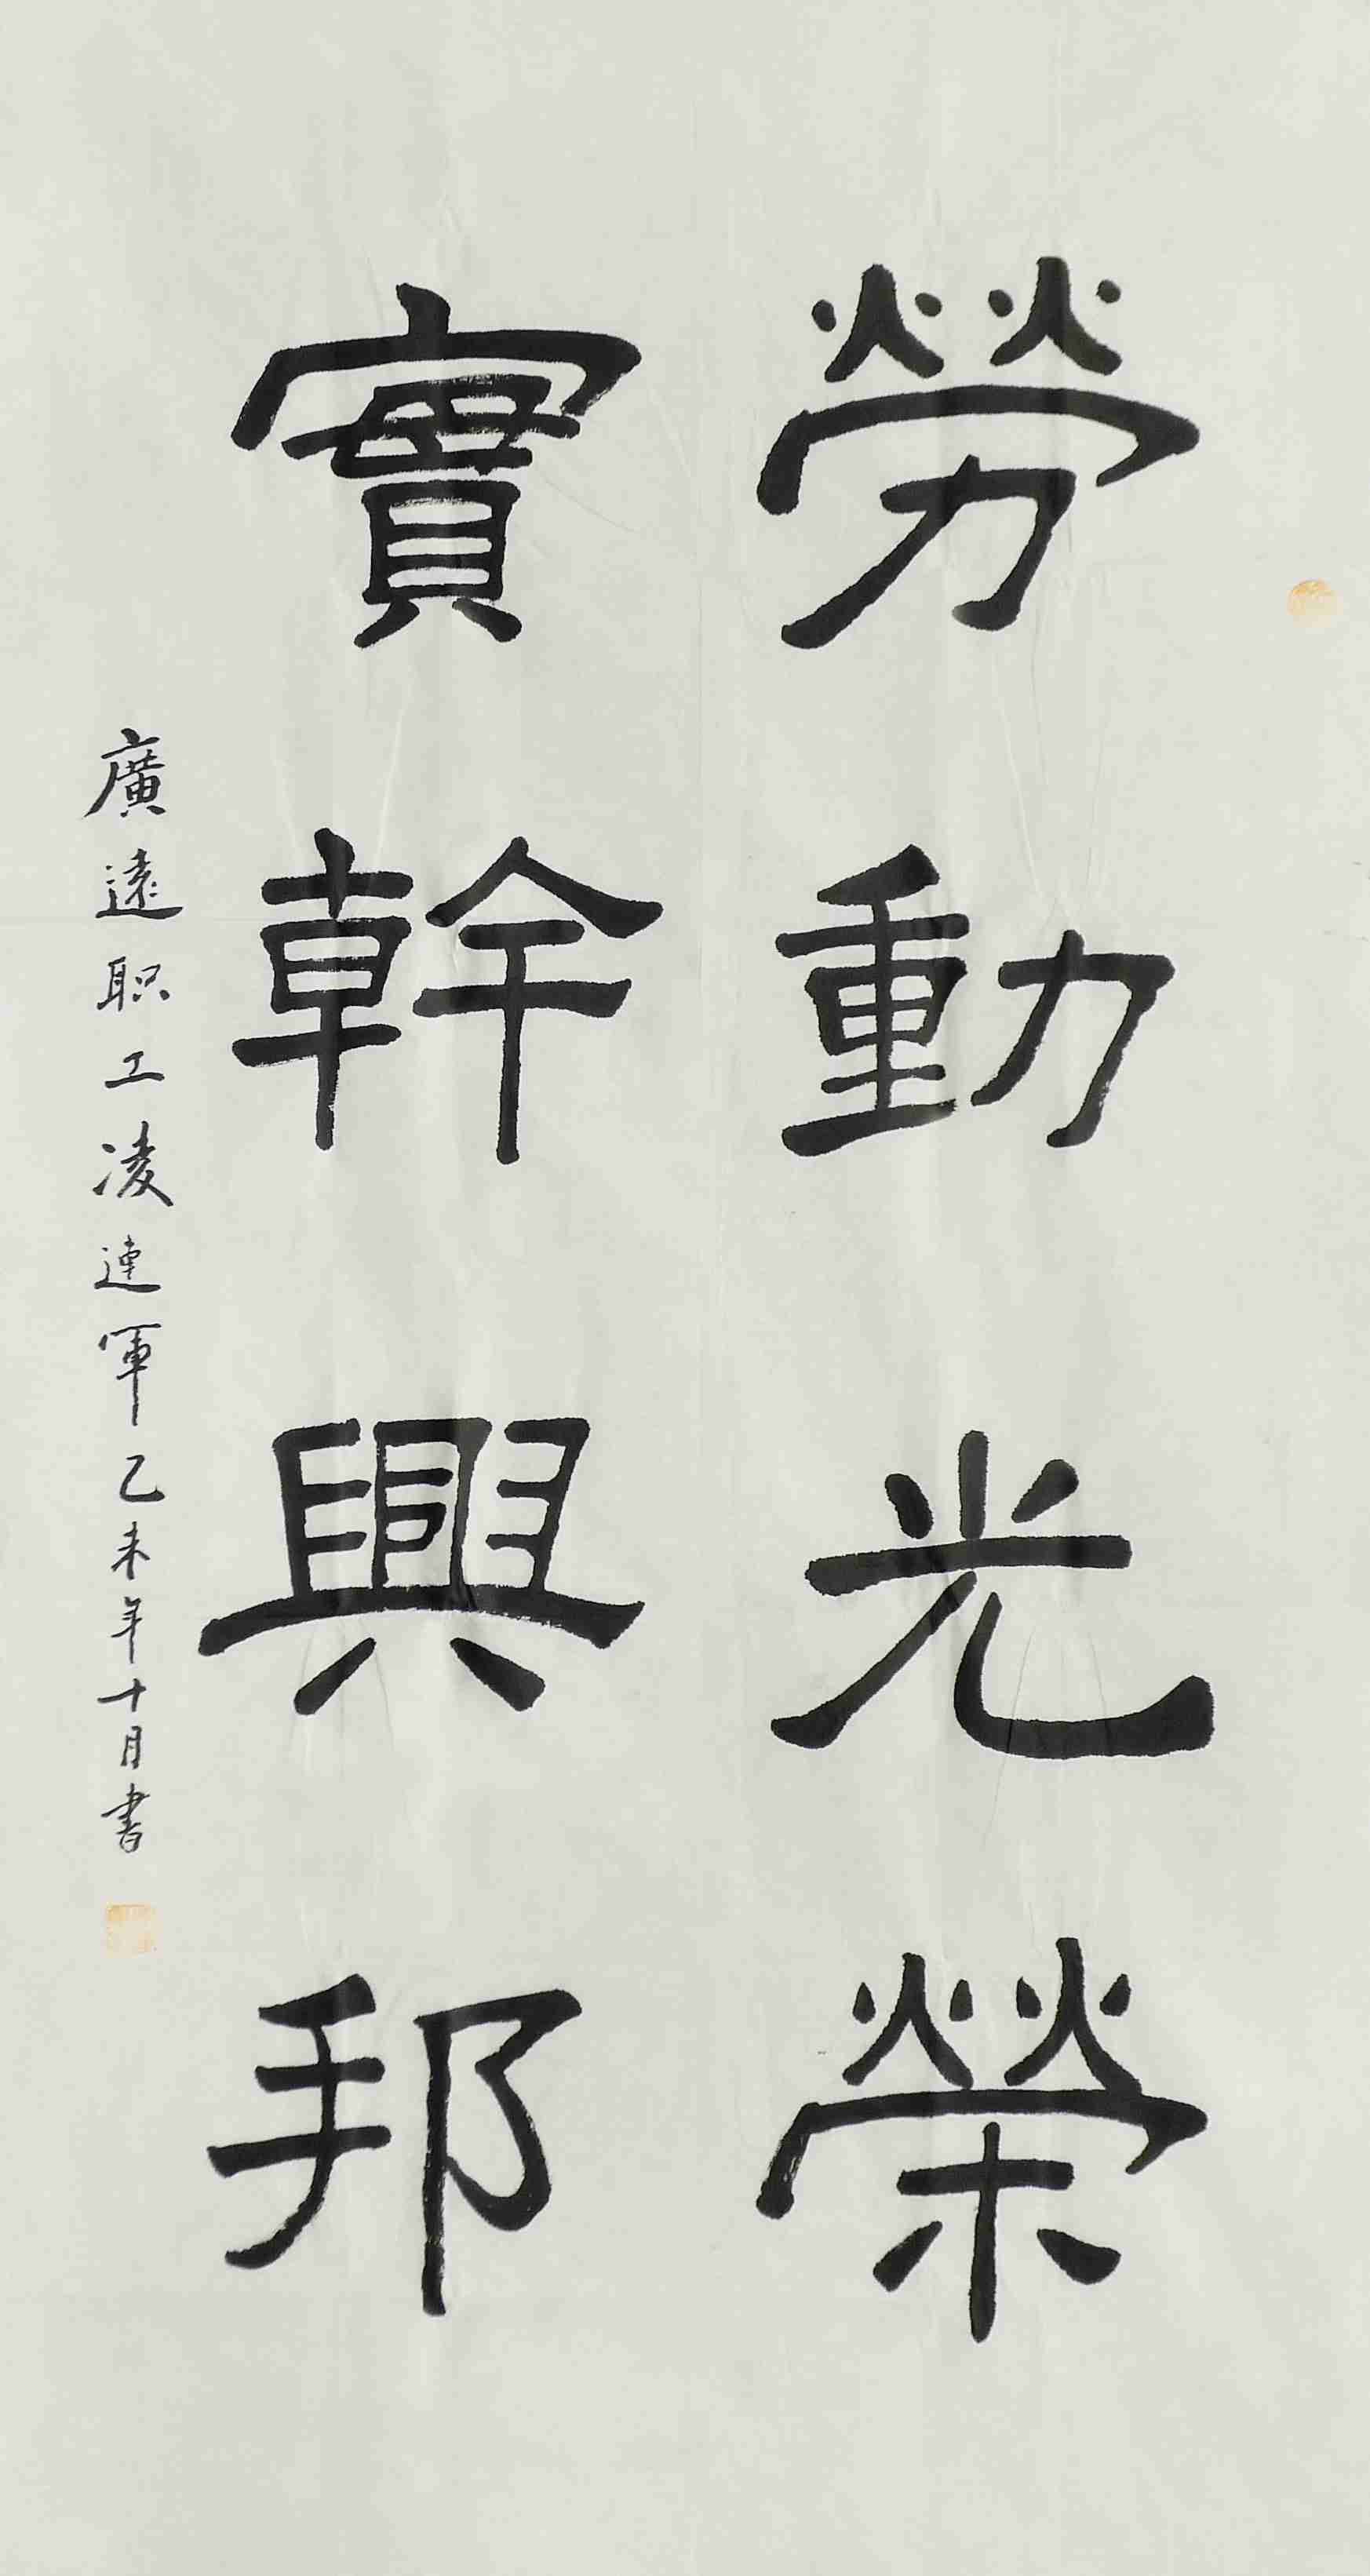 勞動光榮
實幹興邦
廣遠职工凌連軍乙未年十月書